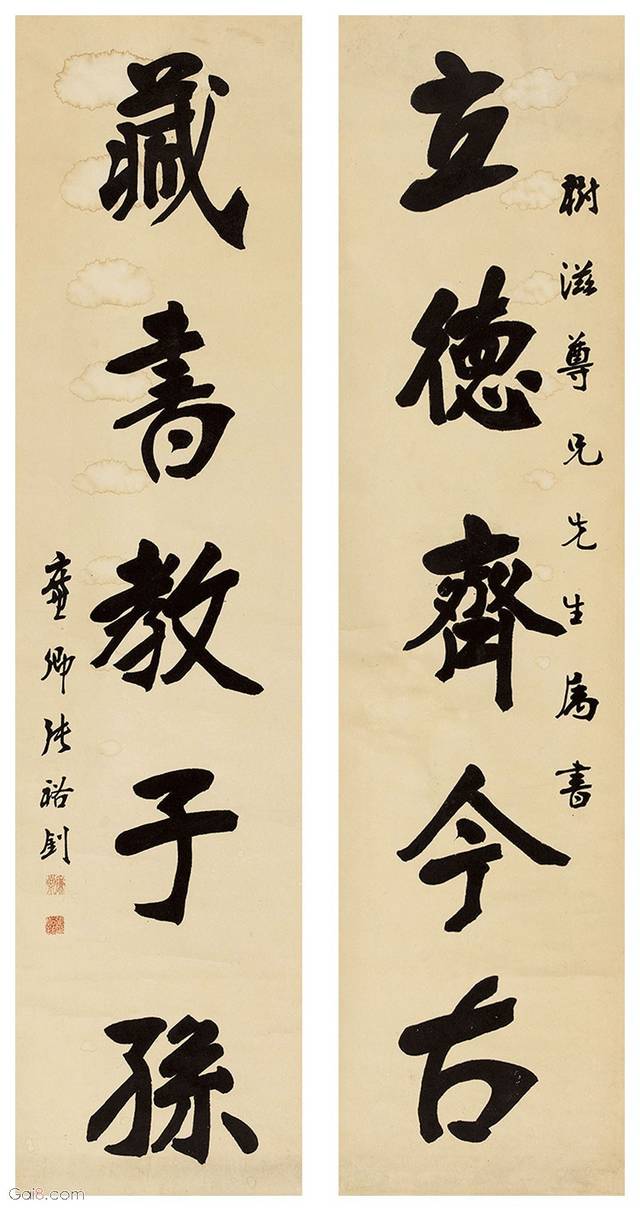 樹滋尊兄先生属書
立德齊今古
藏書教子孫
廉卿張裕釗
Gai8.com